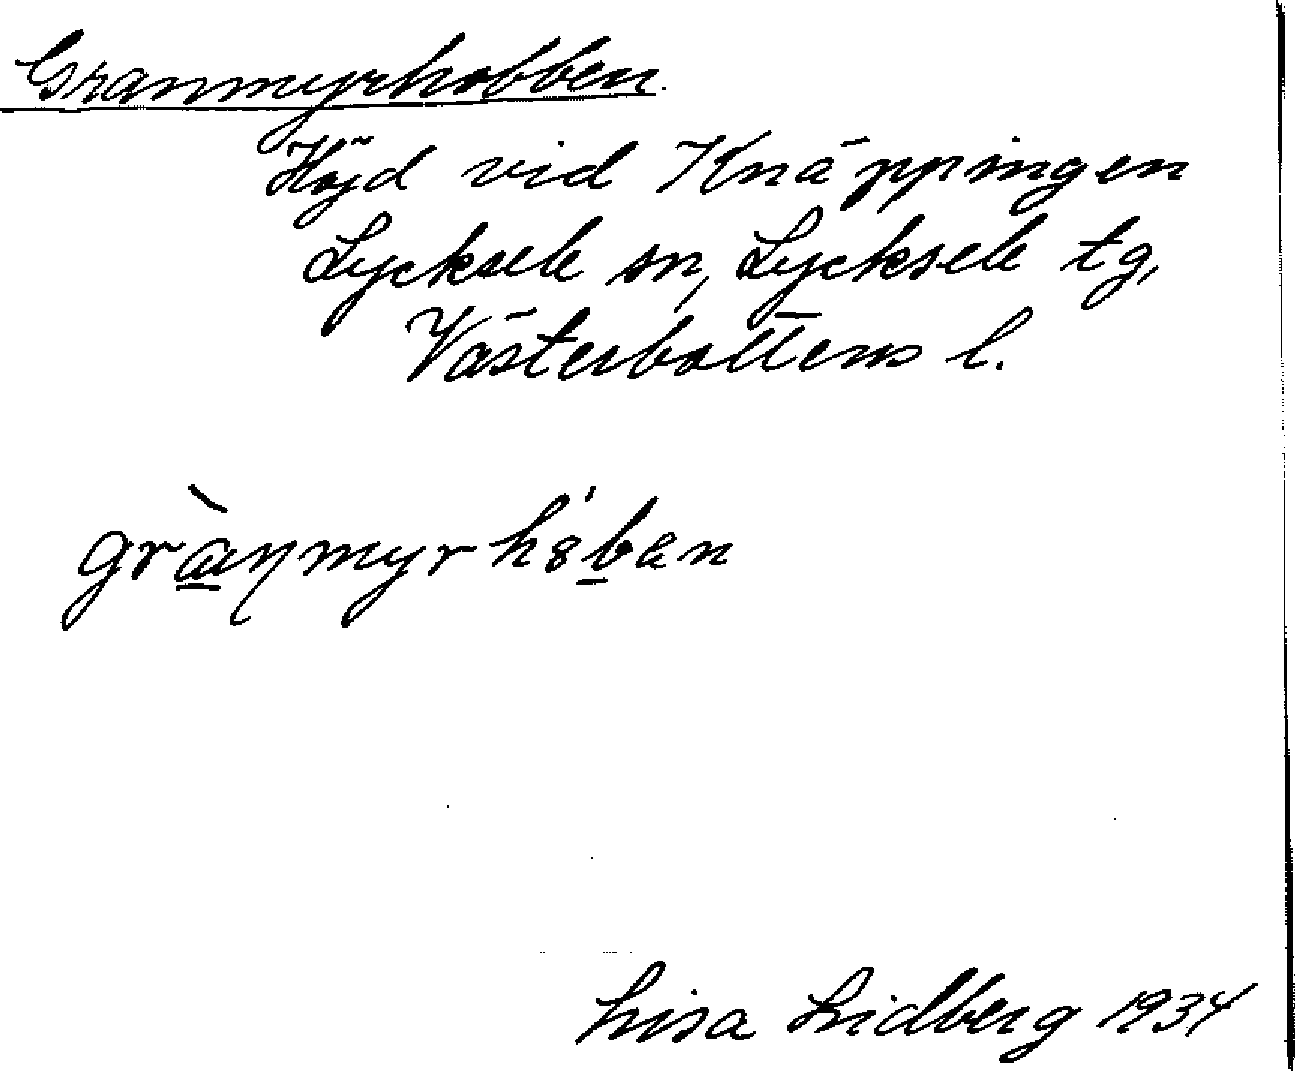 Granmyrhobben.
Höjd vid Knäppingen
Lycksele sn, Lycksele tg,
Västerbottens l.
grànmyrh8'ben
Lisa Lidberg 1934